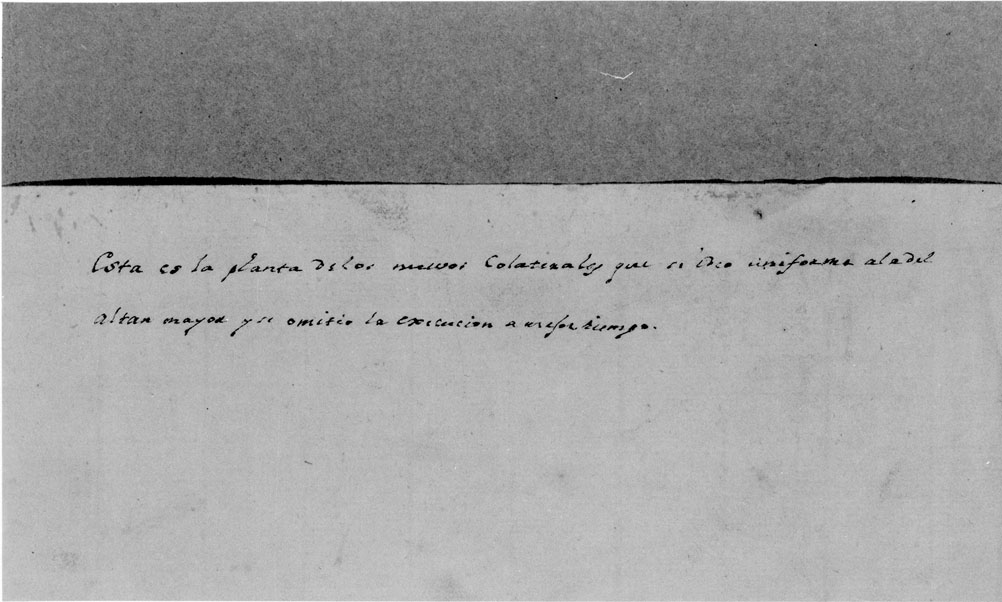 Esta es la planta delos nuevos Colaterales que se ideo uniforme ala del
altar mayor y se omitio la execucion a mejor tiempo.